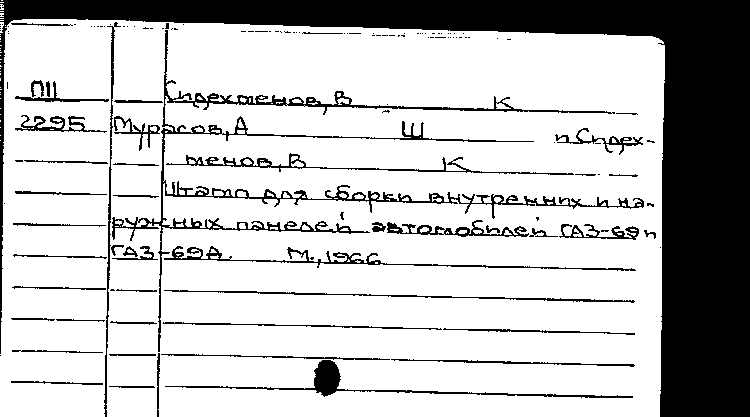 ПП Спдехменов, В К
2295 Мурасов, А Ш и Спдех-
менов, В К
Штамп для сборки внутренних и на-
ружных панелей автомобилей ГАЗ-69 и
ГАЗ-69А. М., 1966